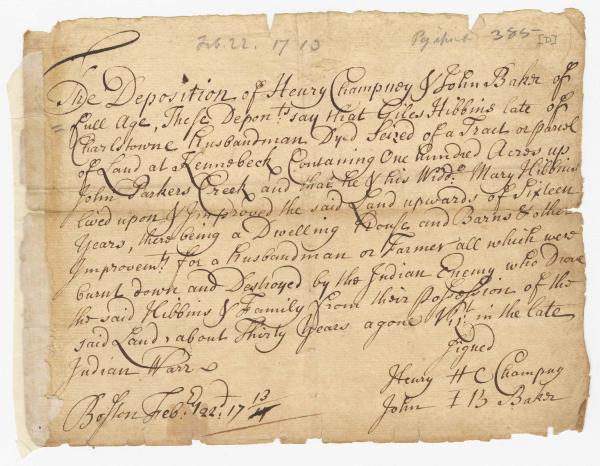 Feb. 22. 1713
385
[D]
The Deposition of Henry Champney & John Baker of
full Age, These Depon.ts say that Giles Hibbins late of
Charlstowne Husbandman Dyed Seized of a Tract or parcel
of Land at Kennebeck Containing One Hundred Acres up
John Parkers Creek and that he & his Wido.e Mary Hibbins
lived upon & Improved the said Land upwards of Sixteen
Years, there being a Dwelling House and Barns & other
Improvem.ts for a Husbandman or Farmer all which were
burnt down and Destroyed by the Indian Enemy who Drove
the said Hibbins & Family from their Possession of the
said Land, about Thirty Years agone Viz.t in the late
Indian Warr
Signed
Henry H C Champny
John I B Baker
Boston Feb. 22.d 17 13